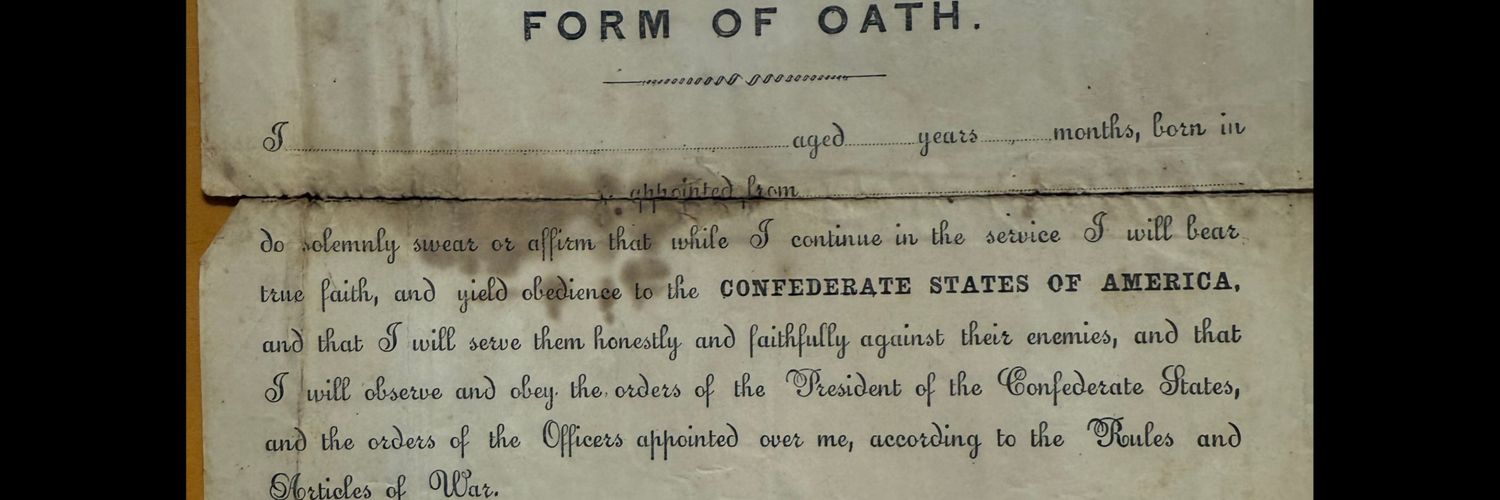 FORM OF OATH.
I aged years months, born in
appointed from
do solemnly swear or affirm that while I continue in the service I will bear
true faith, and yield obedience to the CONFEDERATE STATES OF AMERICA,
and that I will serve them honestly and faithfully against their enemies, and that
I will observe and obey the orders of the President of the Confederate States,
and the orders of the Officers appointed over me, according to the Rules and
Articles of War.